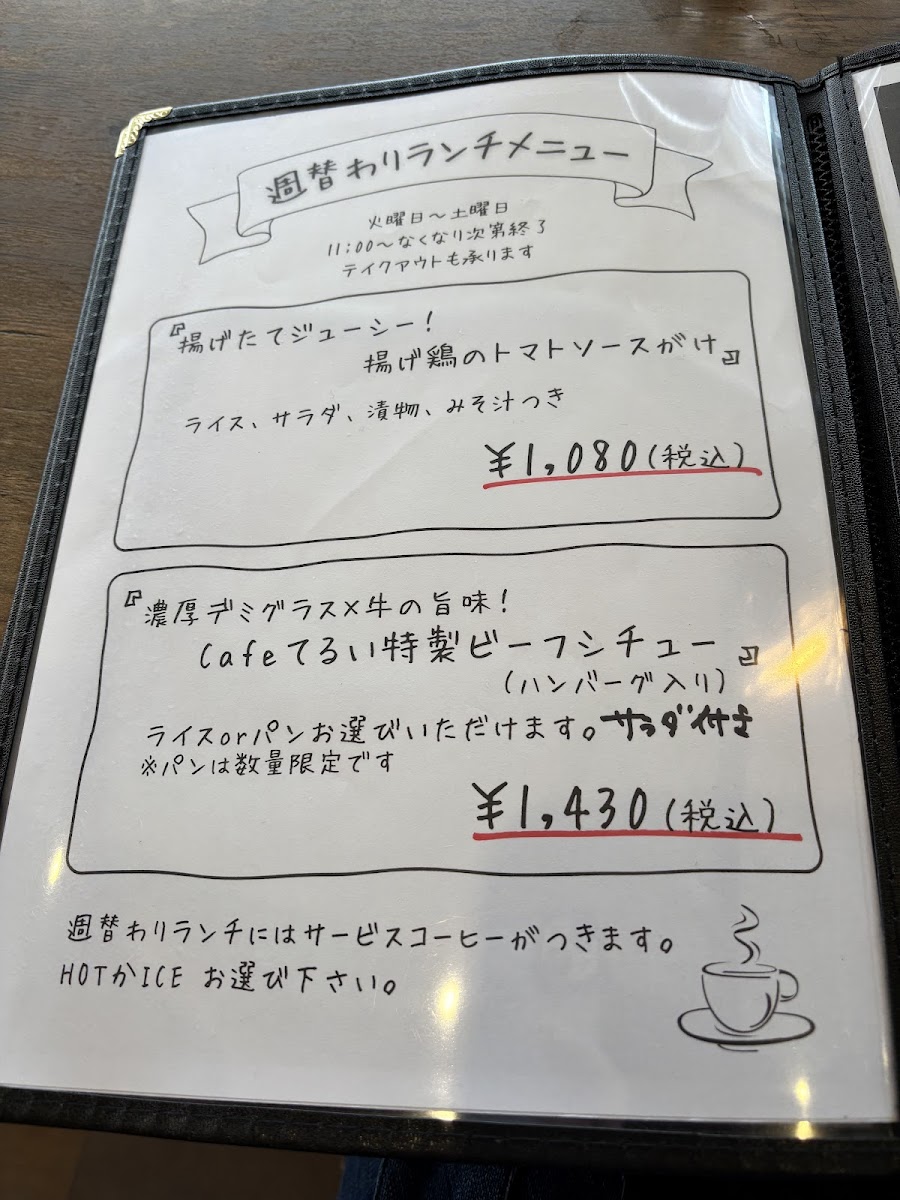 週替わりランチメニュー
火曜日～土曜日
11:00～なくなり次第終了
テイクアウトも承ります
『揚げたてジューシー！
揚げ鶏のトマトソースがけ』
ライス、サラダ、漬物、みそ汁つき
¥1,080(税込)
『濃厚デミグラス×牛の旨味！
Cafeてるい特製ビーフシチュー』
(ハンバーグ入り)
ライスorパンお選びいただけます。サラダ付き
※パンは数量限定です
¥1,430(税込)
週替わりランチにはサービスコーヒーがつきます。
HOTかICE お選び下さい。